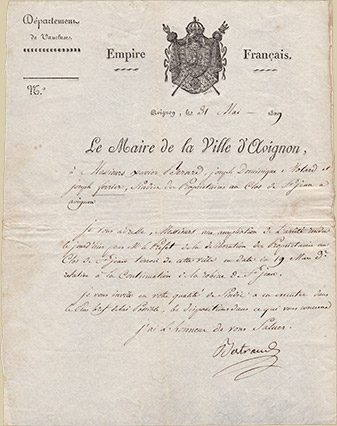 Département
de Vaucluse.
Empire Français.
N.°
Avignon, le 31 Mai 1809
Le Maire de la Ville d'Avignon,
à Messieurs Xavier Bérard, Joseph Dominique Molard et
Joseph ferrier, Sindics des Propriétaires au Clos de St Jean à
avignon
Je vous adresse, Messieurs une ampliation de L'arrêté
par M. le Préfet de la délibération des Propriétaires au
Clos de St Jean terroir de cette ville en date du 19 Mars
relative à la Continuation de la robine de St Jean.
Je vous invite en votre qualité de Sindic à en exécuter dans
le plus bref délai Possible, les dispositions dans ce qui vous concerne
J'ai l'honneur de vous Saluer.
Bertrand